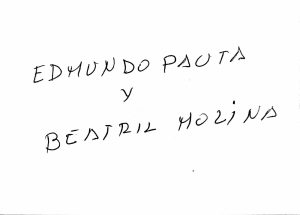 EDMUNDO PAUTA
Y
BEATRIL MOLINA